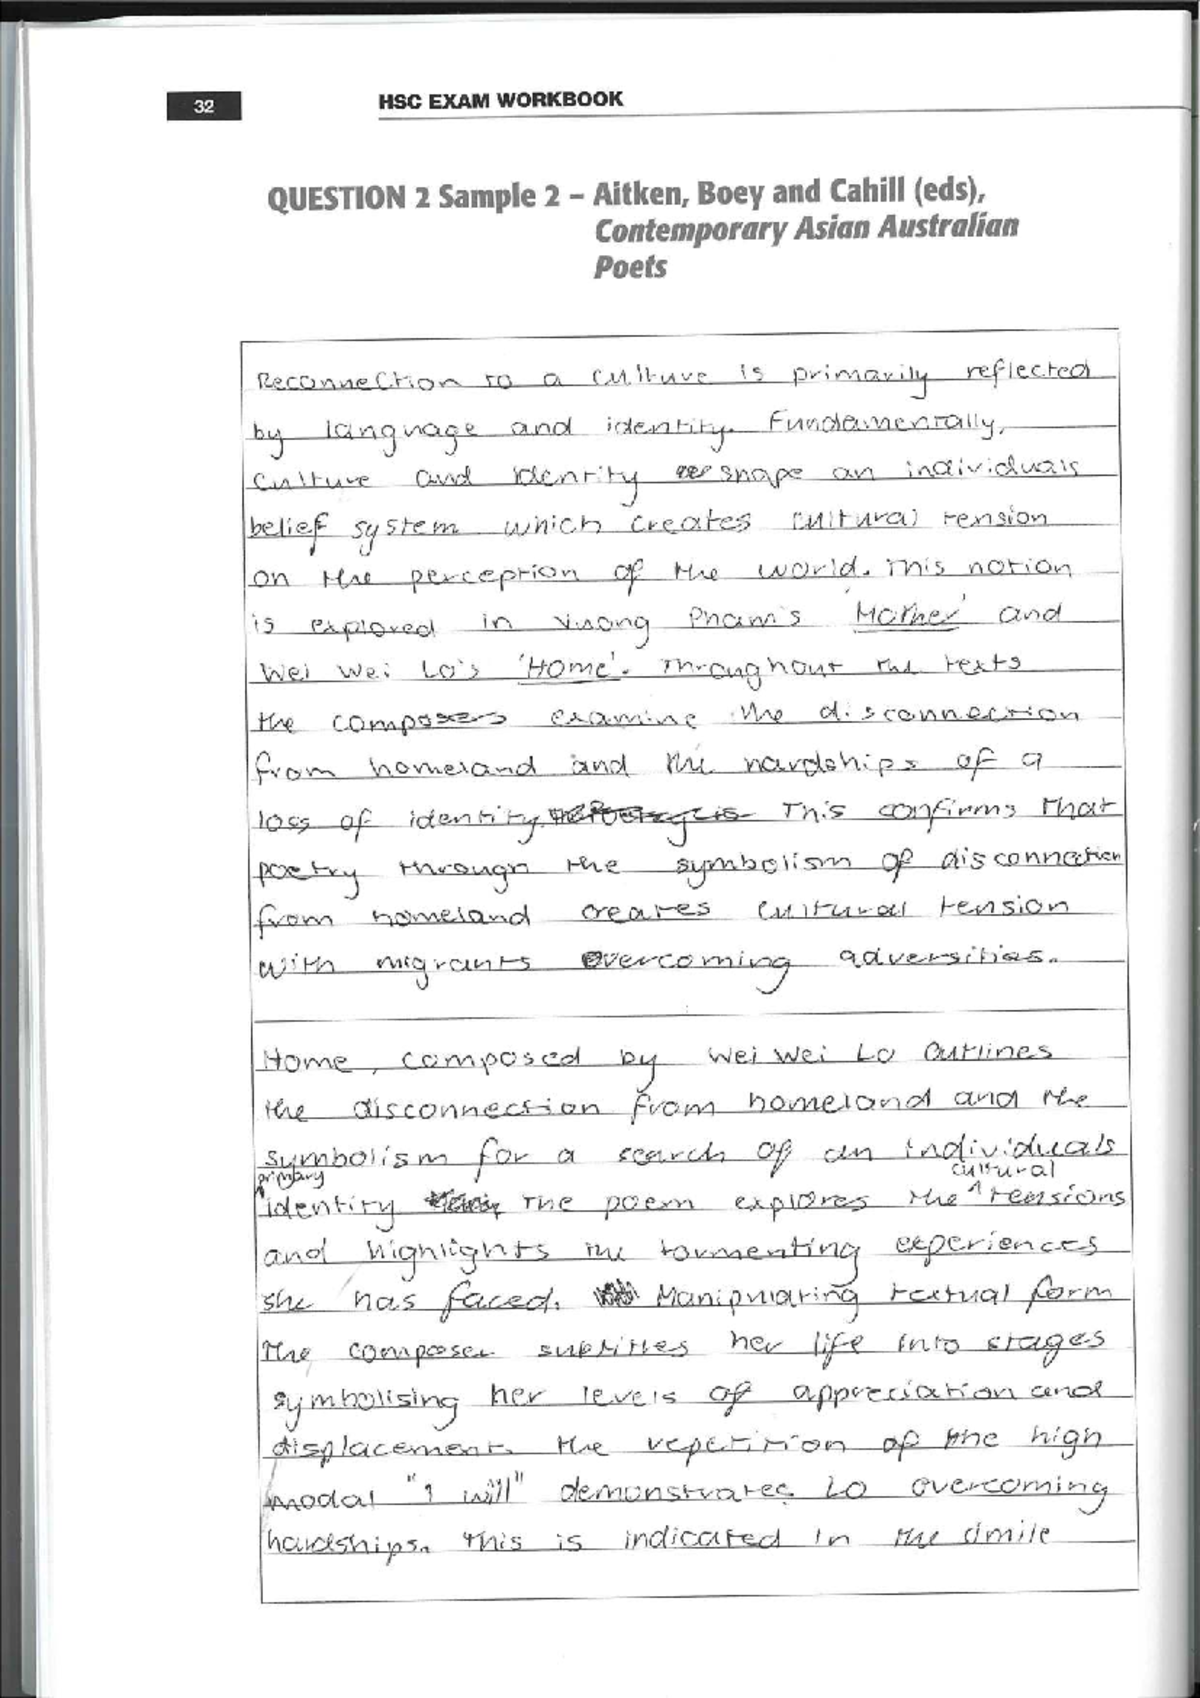 32
HSC EXAM WORKBOOK
QUESTION 2 Sample 2 – Aitken, Boey and Cahill (eds),
Contemporary Asian Australian
Poets
Reconnection to a culture is primarily reflected
by language and identity. Fundamentally,
culture and identity shape an individuals
belief system which creates cultural tension
on the perception of the world. This notion
is explored in Vuong Pham's 'Mother' and
Wei Wei Lo's 'Home'. Throughout the texts
the composers examine the disconnection
from homeland and the hardships of a
loss of identity. This confirms that
poetry through the symbolism of disconnection
from homeland creates cultural tension
with migrants overcoming adversities.
Home, composed by Wei Wei Lo outlines
the disconnection from homeland and the
symbolism for a search of an individuals
primary cultural
identity The poem explores the ^ tensions
and highlights the tormenting experiences
she has faced. Manipulating textual form
The composer subtitles her life into stages
symbolising her levels of appreciation and
displacement. The repetition of the high
modal "I will" demonstrates Lo overcoming
hardships. This is indicated in the simile